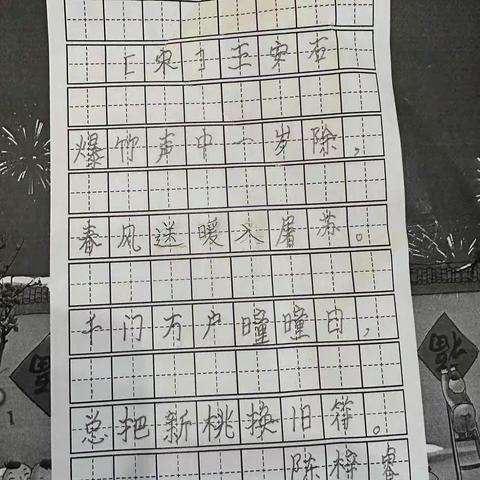 [宋]王安石
爆竹声中一岁除，
春风送暖入屠苏。
千门万户曈曈日，
总把新桃换旧符。
陈梓睿
福